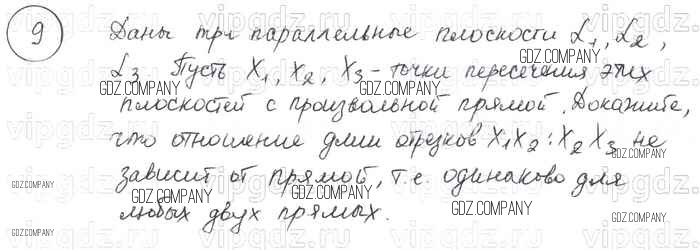 9 Даны три параллельные плоскости α₁, α₂,
α₃. Пусть X₁, X₂, X₃ - точки пересечения этих
плоскостей с произвольной прямой. Докажите,
что отношение длин отрезков X₁X₂ : X₂X₃ не
зависит от прямой, т.е. одинаково для
любых двух прямых.
GDZ.COMPANY
vipgdz